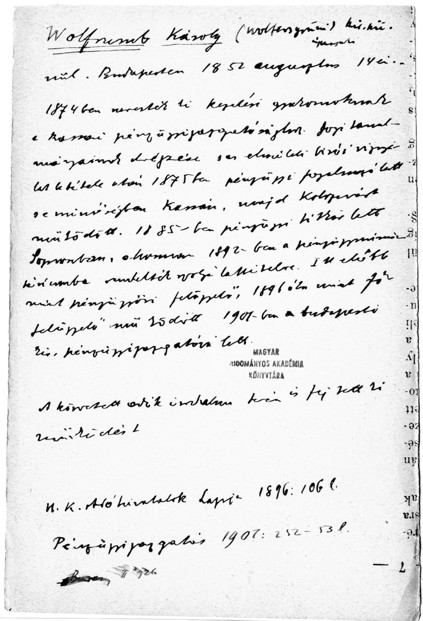 Wolfram Károly
szül. Budapesten 1852 augusztus 14én
1874ben nevezték ki kezelési gyakornoknak
a kassai pénzügyigazgatósághoz. Jogi tanul-
mányainak végzése és az elméleti bírói vizsga
letétele után 1875ben pénzügyi fogalmazó lett
s e minőségben Kassán, majd Kolozsvárt
működött. 1885-ben pénzügyi titkár lett
Sopronban, ahonnan 1892-ben a pénzügyminisz-
tériumba rendelték szolgálattételre. Itt előbb
mint pénzügyőri felügyelő, 1896 óta mint fő-
felügyelő működött 1901-ben a budapesti
kir. pénzügyigazgatója lett.
MAGYAR
TUDOMÁNYOS AKADÉMIA
KÖNYVTÁRA
A következő adók irodalmi terén is fejtett ki
működést
H. K. Adóhivatalok Lapja 1896: 106 l.
Pénzügyigazgatás 1901: 252-53 l.
7